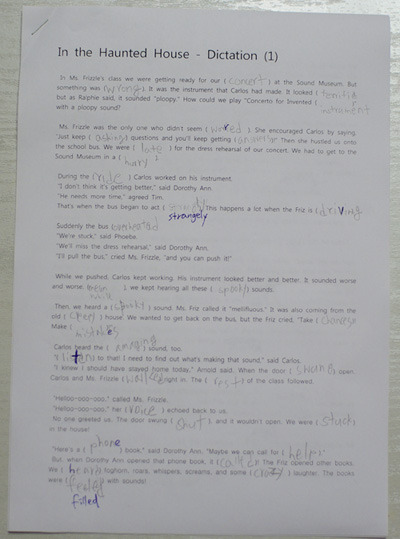 In the Haunted House - Dictation (1)
In Ms. Frizzle's class we were getting ready for our (concert) at the Sound Museum. But
something was (wrong). It was the instrument that Carlos had made. It looked (
but as Ralphie said, it sounded "ploopy." How could we play "Concerto for Invented (
with a ploopy sound?
Ms. Frizzle was the only one who didn't seem (worred). She encouraged Carlos by saying,
"Just keep (asking) questions and you'll keep getting ( Then she hustled us onto
the school bus. We were (late) for the dress rehearsal of our concert. We had to get to the
Sound Museum in a (hurry
During the (ride) Carlos worked on his instrument.
"I don't think it's getting better," said Dorothy Ann.
"He needs more time," agreed Tim.
That's when the bus began to act ( This happens a lot when the Friz is (driving
strangely
Suddenly the bus (
"We're stuck," said Phoebe.
"We'll miss the dress rehearsal," said Dorothy Ann.
"I'll pull the bus," cried Ms. Frizzle, "and you can push it!"
While we pushed, Carlos kept working. His instrument looked better and better. It sounded worse
and worse. ( ), we kept hearing all these (spooky) sounds.
Then, we heard a (spooky) sound. Ms. Friz called it "mellifluous." It was also coming from the
old ( ) house. We wanted to get back on the bus, but the Friz cried, "Take (
Make (mistakes
Carlos heard the (amazing) sound, too.
to that! I need to find out what's making that sound," said Carlos.
"I knew I should have stayed home today," Arnold said. When the door ( ) open,
Carlos and Ms. Frizzle (walked) right in. The (rest) of the class followed.
"Helloo-ooo-ooo," called Ms. Frizzle.
"Helloo-ooo-ooo," her (voice) echoed back to us.
No one greeted us. The door swung ( ), and it wouldn't open. We were (stuck
in the house!
"Here's a (phone) book," said Dorothy Ann. "Maybe we can call for (help)."
But, when Dorothy Ann opened that phone book, it ( The Friz opened other books.
We (heard) foghorn, roars, whispers, screams, and some (crazy) laughter. The books
were ( ) with sounds!
filled